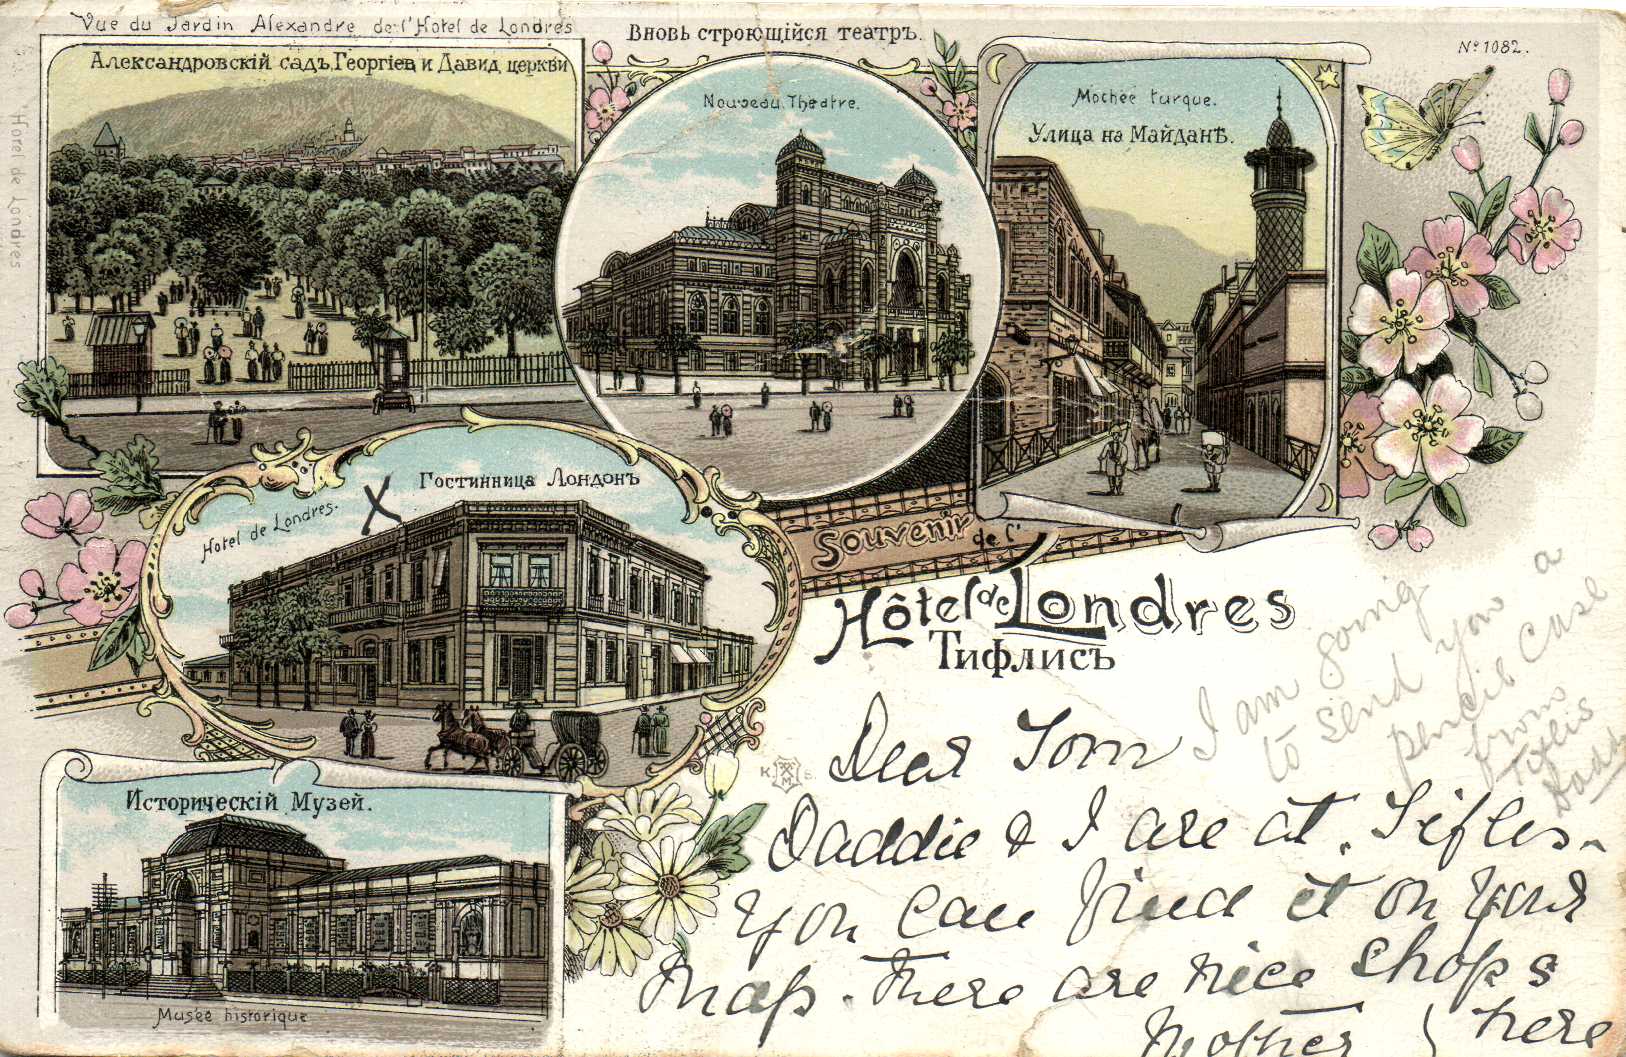 Vue du Jardin Alexandre de l'Hotel de Londres
Александровскій садъ, Георгіев и Давид, церкви
Hotel de Londres
Вновь строющійся театръ.
Nouveau Theatre.
Mochée turque.
Улица на Майданѣ.
№ 1082.
Гостинница Лондонъ
Hotel de Londres.
X
Souvenir de l'
Hôtel de Londres
Тифлисъ
Историческій Музей.
Musée historique
K M B
I am going
to send you a
pencil case
from
Tiflis
Daddy
Dear Tom
Daddie & I are at Tifles.
You can find it on your
map. There are nice shops
here
Mother